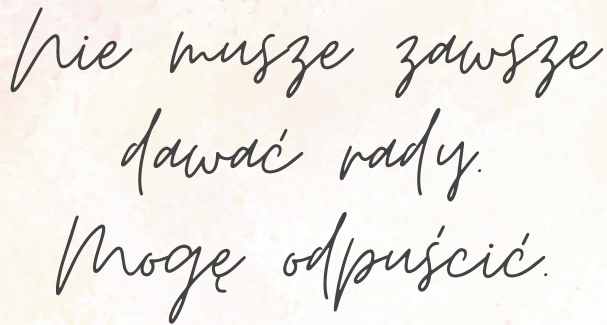 Nie musze zawsze
dawać rady.
Mogę odpuścić.